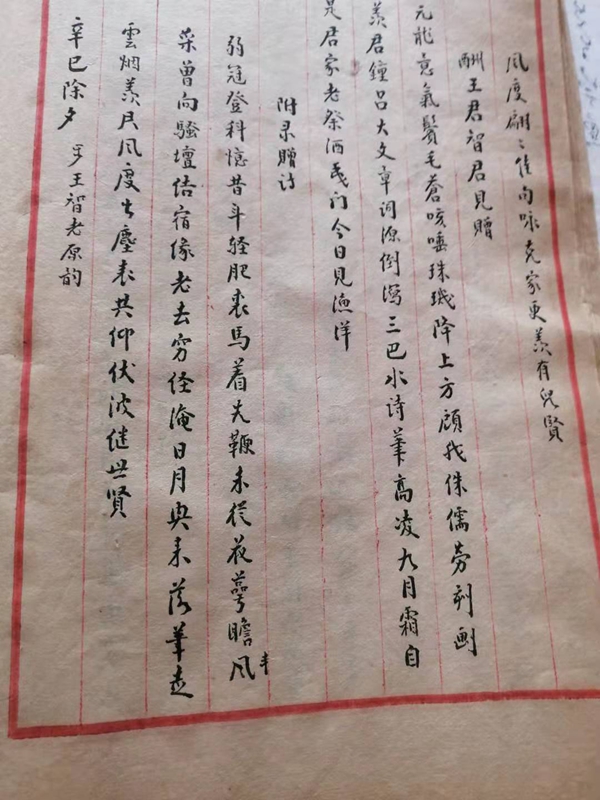 風度翩〻佳句咏克家更羨有兒賢
酬王君智君見贈
元龍意氣鬢毛蒼咳唾珠璣降上方顧我侏儒勞刻劃
羨君鐘吕大文章詞源倒瀉三巴水诗筆高凌九月霜自
是君家老祭酒我门今日見漁洋
附录贈诗
弱冠登科憶昔年軽肥裘馬着先鞭未從花萼瞻風
丰
采曾向騷壇结宿缘老去穷经淹日月興来落筆走
雲烟羨尺風度出塵表共仰伏波継世賢
辛巳除夕 王智老原韵